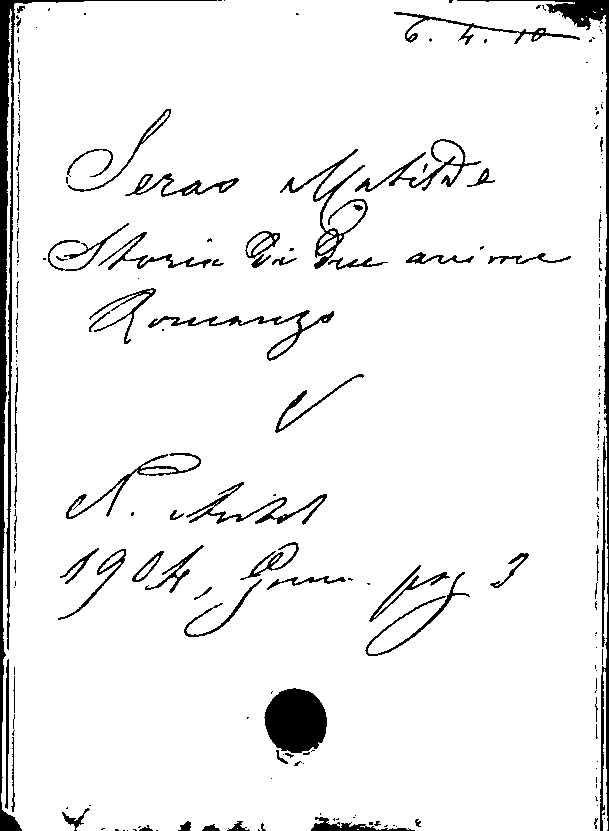 6. 4. 10
Serao Matilde
Storia di due anime
Romanzo
V
N. Antol
1904, Genn. pag 3